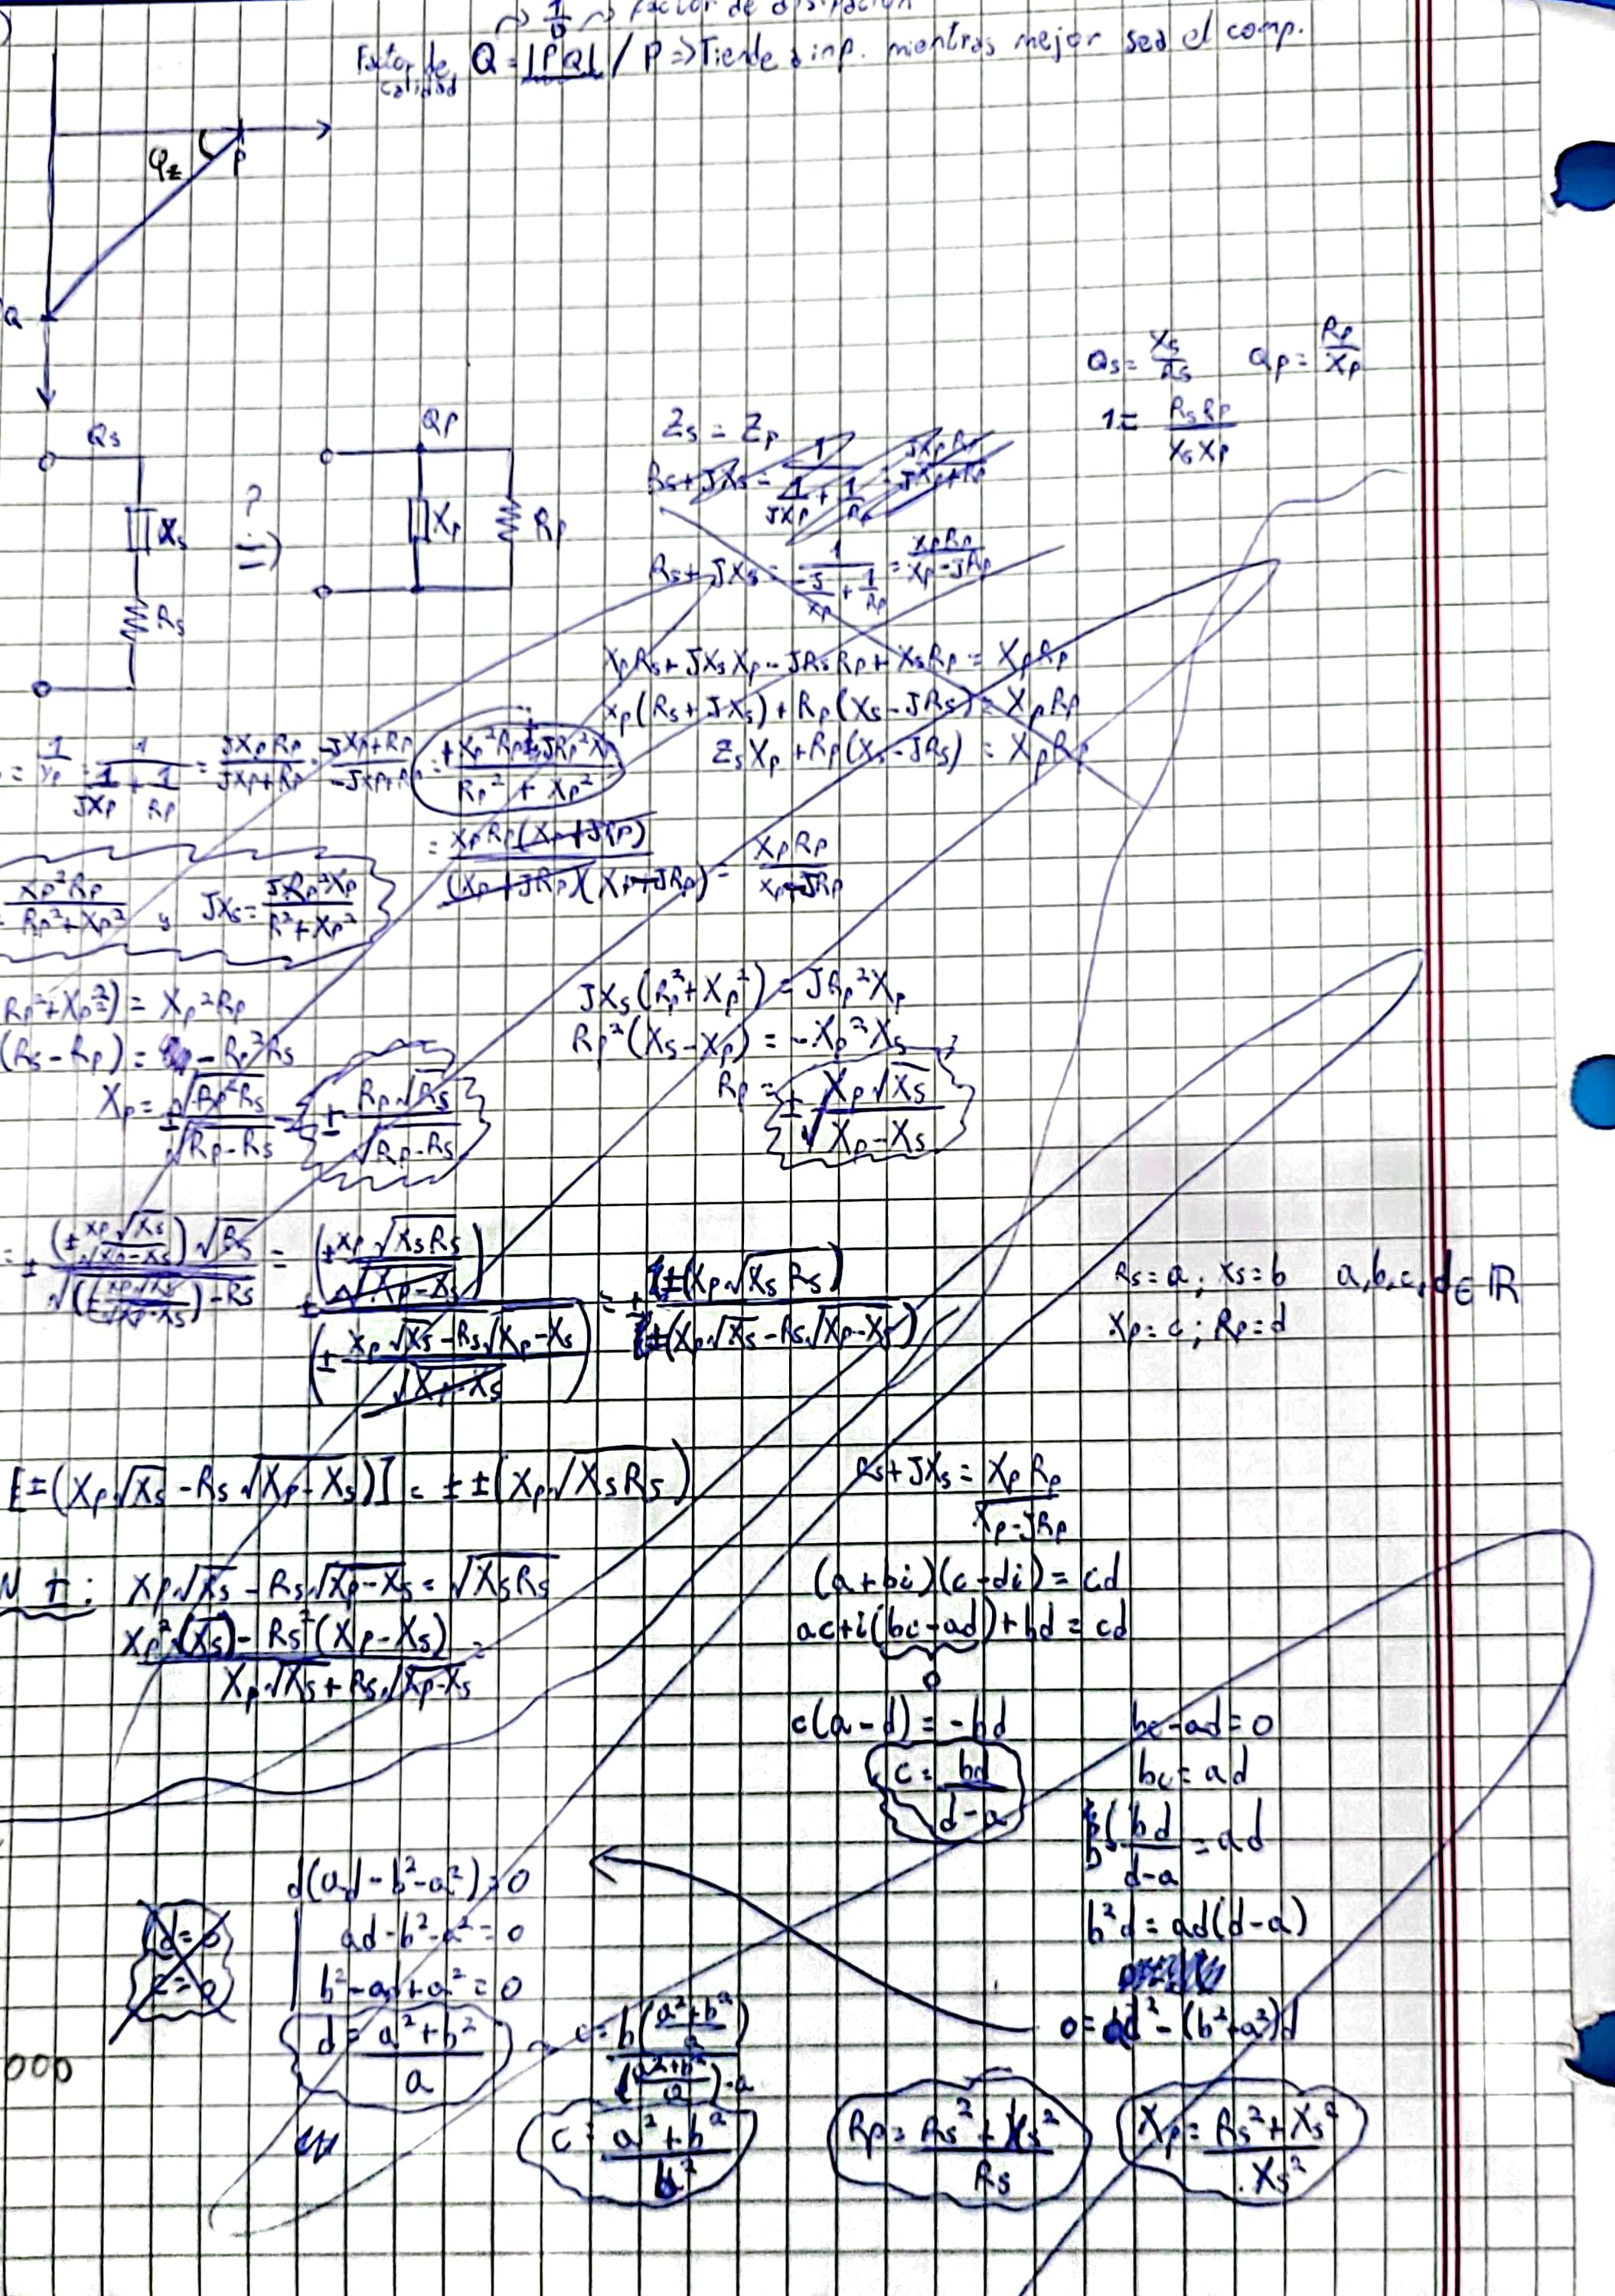 → 1/D → Factor de disipación
Factor de calidad Q = |PQ| / P => Tiende a inf. mientras mejor sea el comp.
φz
P
Q
Qs = Xs/Rs Qp = Rp/Xp
1 = RsRp/XsXp
Qs
Qp
Xs
Rs
?
=)
Xp
Rp
Zs = Zp
Rs + JXs = 1/(1/JXp + 1/Rp) = JXpRp/(JXp+Rp)
Rs + JXs = 1/(-J/Xp + 1/Rp) = XpRp/(Xp-JRp)
XpRs + JXsXp - JRsRp + XsRp = XpRp
Xp(Rs + JXs) + Rp(Xs - JRs) = XpRp
ZsXp + Rp(Xs - JRs) = XpRp
= 1/Yp = 1/(1/JXp + 1/Rp) = JXpRp/(JXp+Rp) · (-JXp+Rp)/(-JXp+Rp) = (+Xp²Rp + JRp²Xp)/(Rp² + Xp²)
= XpRp(Xp+JRp)/((Xp+JRp)(Xp-JRp)) = XpRp/(Xp-JRp)
= Xp²Rp/(Rp²+Xp²) y JXs = JRp²Xp/(R²+Xp²)
Rp²+Xp²) = Xp²Rp
(Rs - Rp) = - Rp²Rs
Xp = ±√(Rp²Rs)/√(Rp-Rs) = ± Rp√Rs/√(Rp-Rs)
JXs(Rp²+Xp²) = JRp²Xp
Rp²(Xs-Xp) = -Xp²Xs
Rp = ± Xp√Xs/√(Xp-Xs)
= ± (± Xp√Xs/√(Xp-Xs))√Rs / √((± Xp√Xs/√(Xp-Xs)) - Rs) = ± (± Xp√(XsRs)/√(Xp-Xs)) / (± (Xp√Xs - Rs√(Xp-Xs))/√(Xp-Xs)) = ± [±(Xp√(XsRs)]/[±(Xp√Xs - Rs√(Xp-Xs))]
Rs = a ; Xs = b a,b,c,d ∈ ℝ
Xp = c ; Rp = d
[±(Xp√Xs - Rs√(Xp-Xs))] = ± ±(Xp√(XsRs))
Rs + JXs = XpRp/(Xp-JRp)
N ±: Xp√Xs - Rs√(Xp-Xs) = √(XsRs)
(Xp²(Xs) - Rs²(Xp-Xs))/(Xp√Xs + Rs√(Xp-Xs)) =
(a+bi)(c-di) = cd
ac+i(bc-ad)+bd = cd
0
c(a-d) = -bd
c = bd/(d-a)
bc-ad = 0
bc = ad
b · bd/(d-a) = ad
b²d = ad(d-a)
0 = ad² - (b²+a²)d
d(ad-b²-a²) = 0
d=0
c=0
ad-b²-a² = 0
b²-ad+a² = 0
d = (a²+b²)/a → c = b((a²+b²)/a)/(((a²+b²)/a)-a)
c = (a²+b²)/b²
Rp = (Rs²+Xs²)/Rs
Xp = (Rs²+Xs²)/Xs²
000